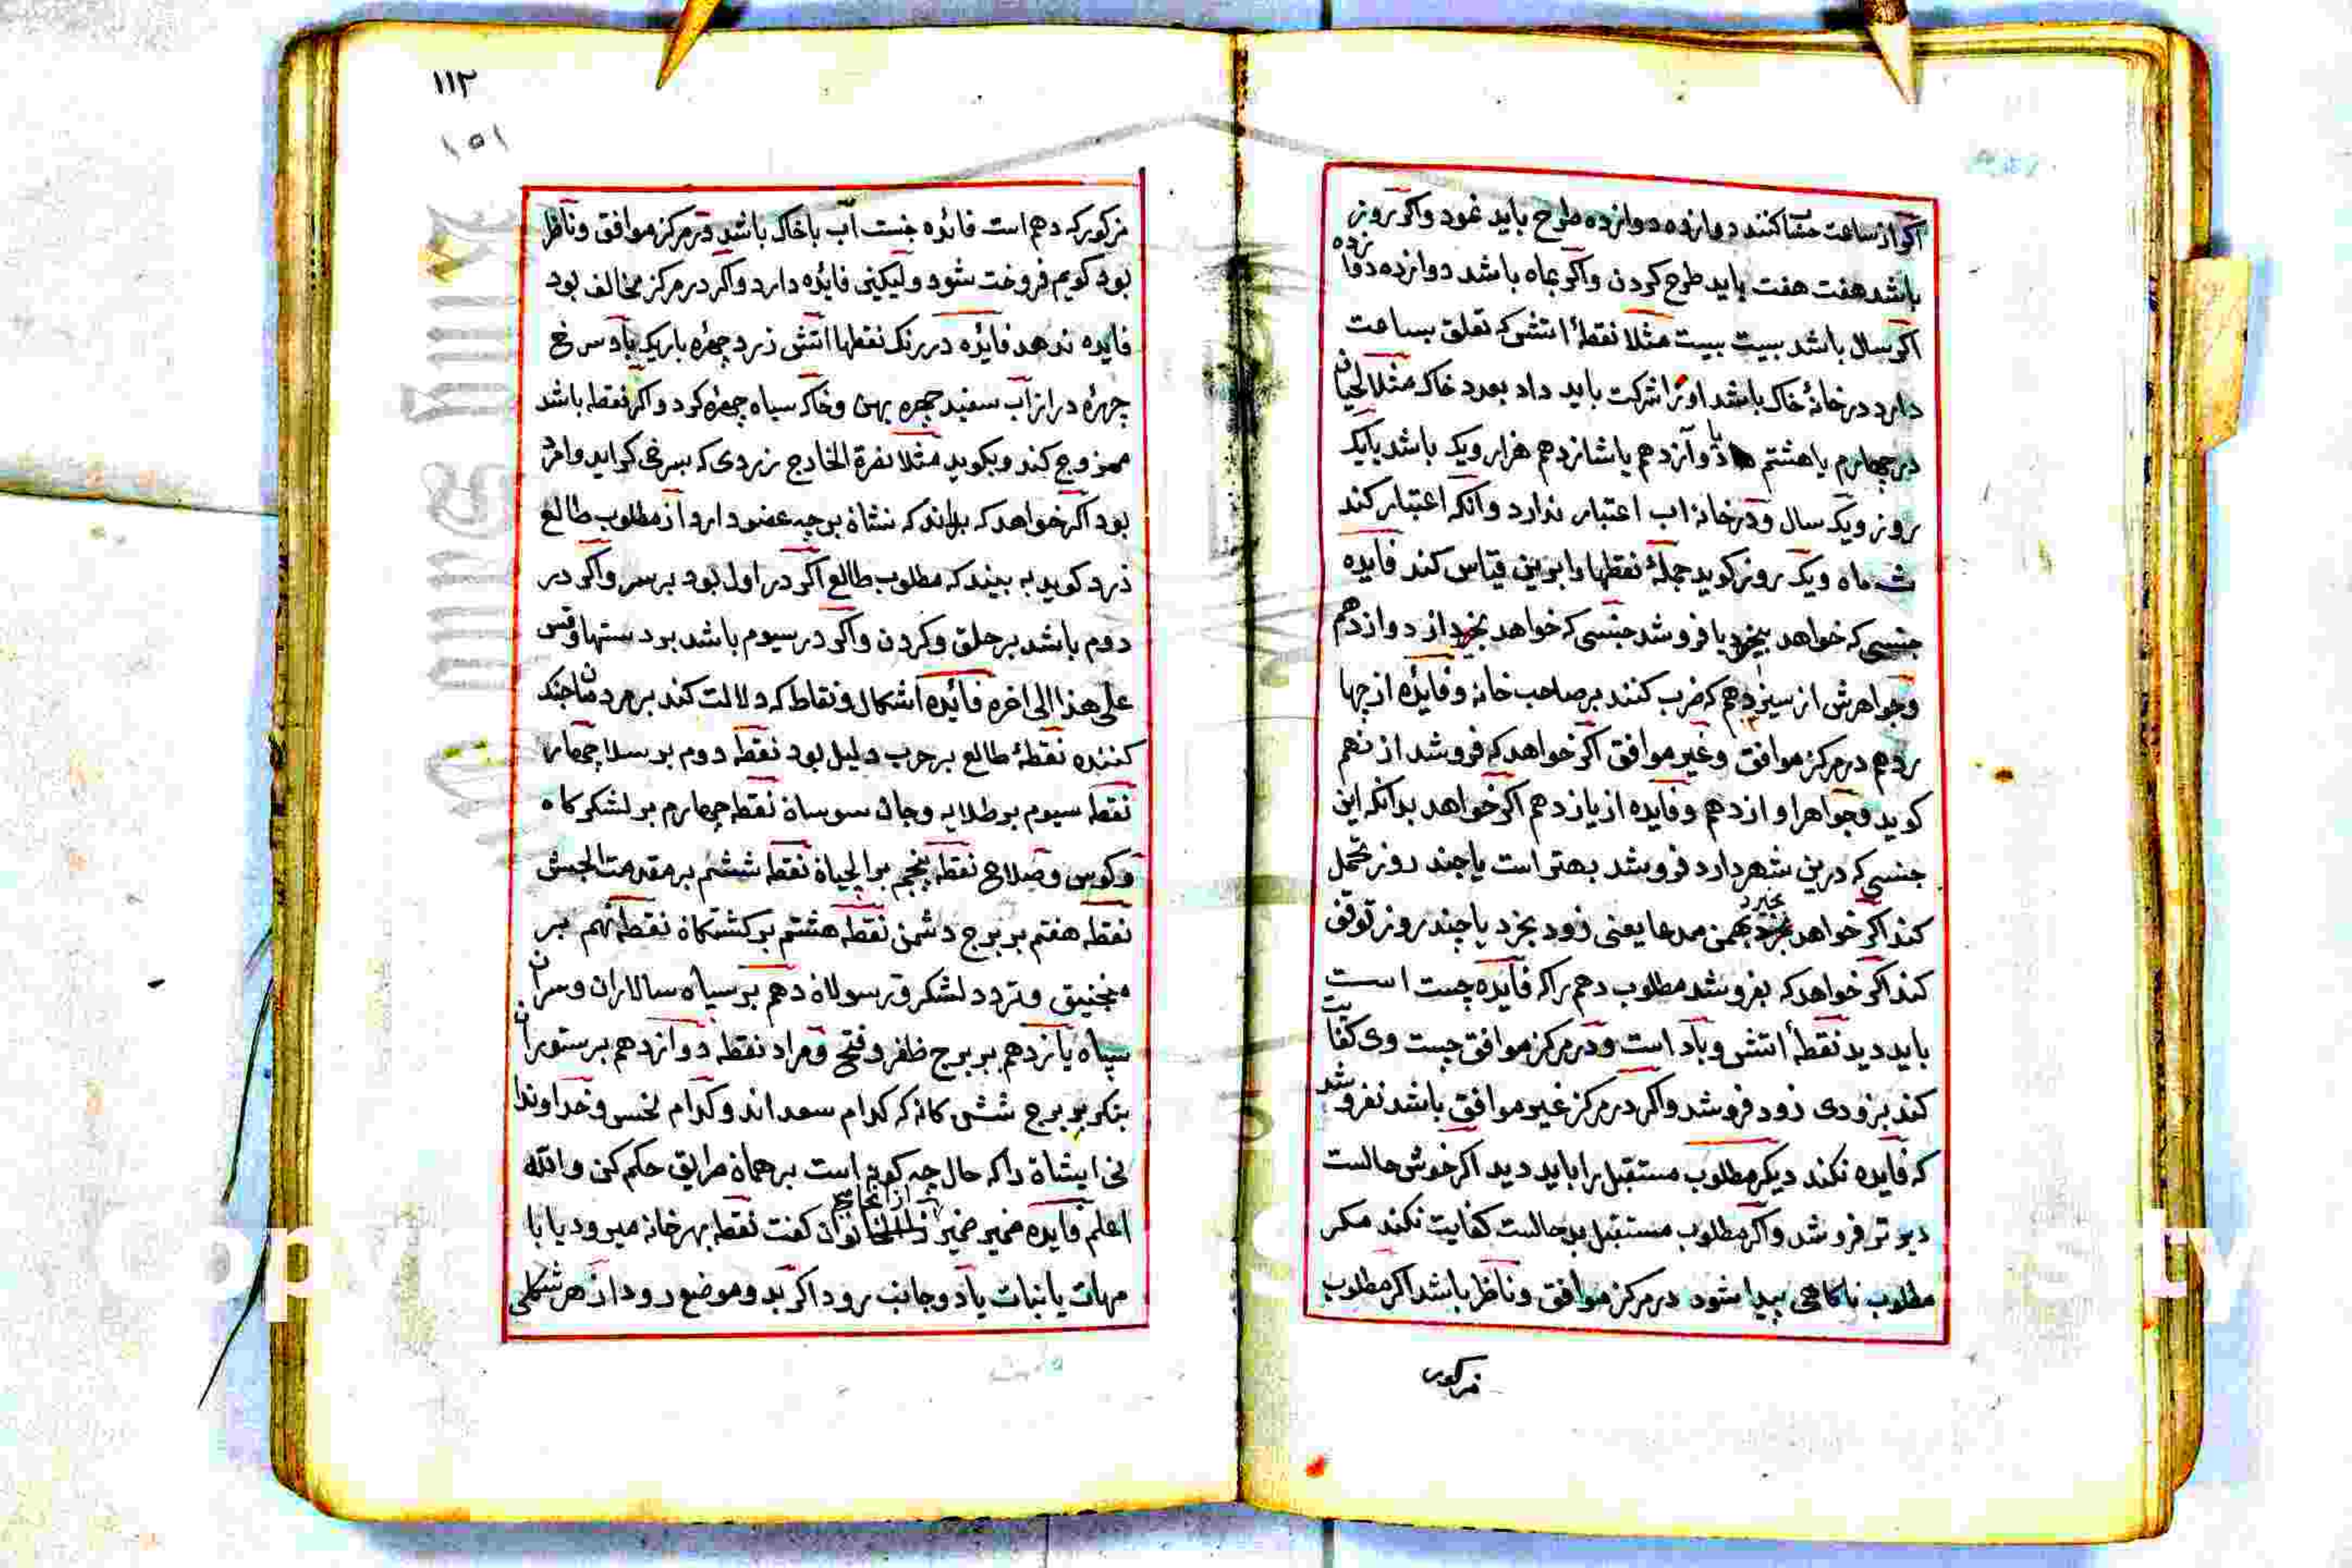 اکر از ساعت حسا کنند دوازده دوازده طرح باید نمود واکر بروز
باشد هفت هفت باید طرح کردن واکر بماه باشد دوازده دوازده
اکر سال باشد بیست بیست مثلا نقطهٔ اتشی که تعلق بساعت
دارد در خانهٔ خاک باشد او را شرکت باید داد بعدد خاک مثلا لحیان
در چهارم یا هشتم یا دوازدهم یا شانزدهم هزار ویک باشد یا یک
روز ویک سال ودر خانه اب اعتبار ندارد وانکه اعتبار کند
شماه ویک روز کوید جملهٔ نقطها را برین قیاس کند فایده
جنسی که خواهد بخرد یا فروشد جنسی که خواهد بخرد از دوازدهم
وجواهرش از سیزدهم که ضرب کنند بر صاحب خانه وفایٔده از چها
ردهم در مرکز موافق وغیر موافق اکر خواهد که فروشد از نهم
کوید وجواهر او از دهم وفایده از یازدهم اکر خواهد بداند که این
جنسی که درین شهر دارد فروشد بهتر است یا چند روز تحمل
کند اکر خواهد بخرد همین مدعا یعنی زود بخرد یا چند روز توقف
کند اکر خواهد که بفروشد مطلوب دهم را که فایده چیست است
باید دید نقطهٔ اتشی وباد است ودر مرکز موافق چیست وی کفایت
کند بزودی زود فروشد واکر در مرکز غیر موافق باشد نفروشد
که فایده نکند دیکر مطلوب مستقبل را باید دید اکر خوش حالست
دیر تر فروشد واکر مطلوب مستقبل بد حالست کفایت نکند مکر
مطلوب ناکاهی پیدا شود در مرکز موافق وناظر باشد اکر مطلوب
مزکور
١١٢
١٥١
مزکور که دهم است فائده چیست اب با خاک باشد ودر مرکز موافق وناظر
بود کویم فروخت شود ولیکنی فایٔده دارد واکر در مرکز مخالف بود
فایده ندهد فایٔده در رنک نقطها اتشی زرد چهره باریک باد سرخ
چهرهٔ دراز آب سفید چهره پهن وخاک سیاه چهره کرد واکر نقطه باشد
ممزوج کند وبکوید مثلا نصرة الخارج زردی که بسرخی کراید
بود اکر خواهد که بداند که نشان بر چه عضو دارد از مطلوب طالع
ذرد کوید به بیند که مطلوب طالع اکر در اول بود بر سر واکر در
دوم باشد بر حلق وکردن واکر در سیوم باشد بر دستها وقس
علی هذا الی اخره فائده اشکال ونقاط که دلالت کند بر مردمان جنک
کننده نقطهٔ طالع بر حرب دلیل بود نقطه دوم بر سلاح چهار
نقطه سیوم بر طلایه وجاسوسان نقطه چهارم بر لشکر کاه
وکوس نقطه پنجم نقطه ششم بر مقدمة الجیش
نقطه هفتم بر برج دشمن نقطه هشتم بر کشتکان نقطه نهم بر
منجنیق وتردد لشکر ورسولان دهم بر سپاه سالاران وسران
سپاه یازدهم بر برج ظفر وفتح ومراد نقطه دوازدهم بر ستوران
بنکر بر برج ششی کانه که کدام سعد اند وکدام نحس وخداوندا
نی ایشان را که حال چه کونه است بر همان طرایق حکم کن والله
اعلم فایده ضمیر ضمیر از انجا توان کفت نقطه بهر خانه میرود یا با
مهات یا نبات یاد وجانب رود اکر بد وموضع رود از هر شکلی